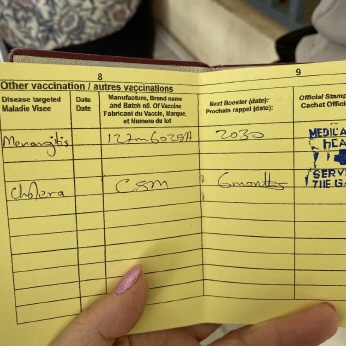 8
9
Other vaccination / autres vaccinations
Disease targeted
Maladie Visee
Date
Date
Manufacture, Brand name
and Batch n0. Of Vaccine
Fabricant du Vaccin, Marque,
et Numero du lot
Next Booster (date):
Prochain rappel (date):
Official Stamp
Cachet Officiel
Meningitis
2030
MEDICA
HEA
Cholera
CSM
6months
SERV
THE GA